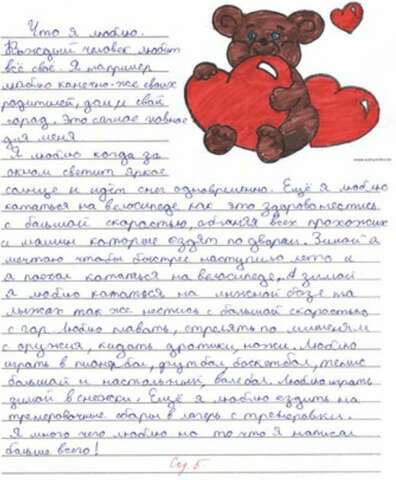 Что я люблю.
Каждый человек любит
всё своё. Я например
люблю конечно-же своих
родителей, дом и свой
город. Это самое главное
для меня
Я люблю когда за
окном светит яркое
солнце и идёт снег одновременно. Ещё я люблю
кататься на велосипеде как это здорово нестись
с большой скоростью, обгоняя всех прохожих
и машин которые ездят по дворам. Зимой я
мечтаю чтобы быстрее наступило лето и
я поехал кататься на велосипеде. А зимой
я люблю кататься на лыжной базе на
лыжах так же нестись с большой скоростью
с гор. Люблю плавать, стрелять по мишеням
с оружия, кидать дротики, ножи. Люблю
играть в пионербол, футбол, баскетбол, теннис
большой и настольный, волебол. Люблю играть
зимой в снежки. Ещё я люблю ездить на
тренеровочные сборы в лагерь с
Я много чего люблю но то что я написал
больше всего!